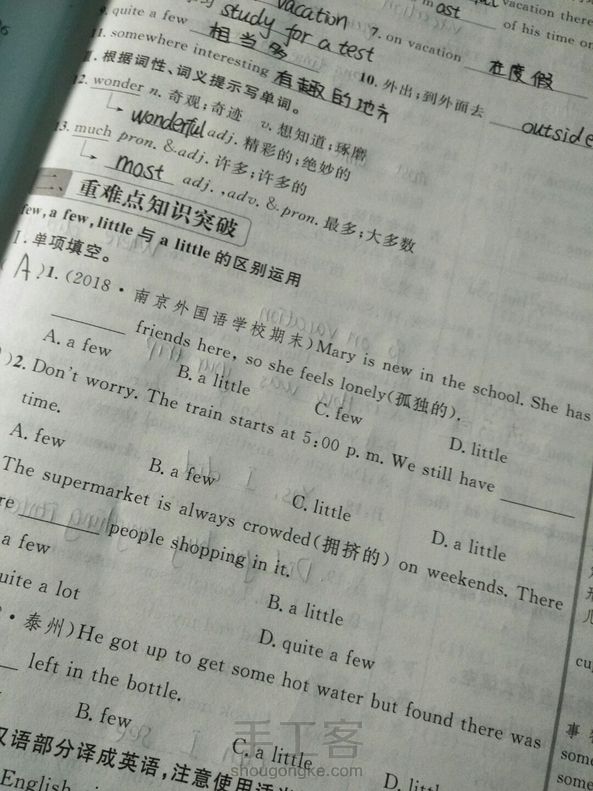 vacation
9. quite a few 相当多
study for a test
most
vacation there
of his time on
7. on vacation 在度假
11. somewhere interesting 有趣的地方
10. 外出;到外面去 outside
Ⅱ. 根据词性、词义提示写单词。
12. wonder n. 奇观;奇迹 v. 想知道;琢磨
wonderful adj. 精彩的;绝妙的
13. much pron. & adj. 许多;许多的
most adj., adv. & pron. 最多;大多数
二、重难点知识突破
few, a few, little 与 a little 的区别运用
Ⅰ. 单项填空。
(A)1. (2018·南京外国语学校期末) Mary is new in the school. She has
friends here, so she feels lonely(孤独的).
A. a few B. a little C. few D. little
)2. Don't worry. The train starts at 5:00 p. m. We still have
time.
A. few B. a few C. little D. a little
The supermarket is always crowded(拥挤的) on weekends. There
people shopping in it.
a few B. a little
quite a lot D. quite a few
·泰州) He got up to get some hot water but found there was
left in the bottle.
B. few C. a little
汉语部分译成英语,注意使用适当
English
事
some
some
手工客
shougongke.com